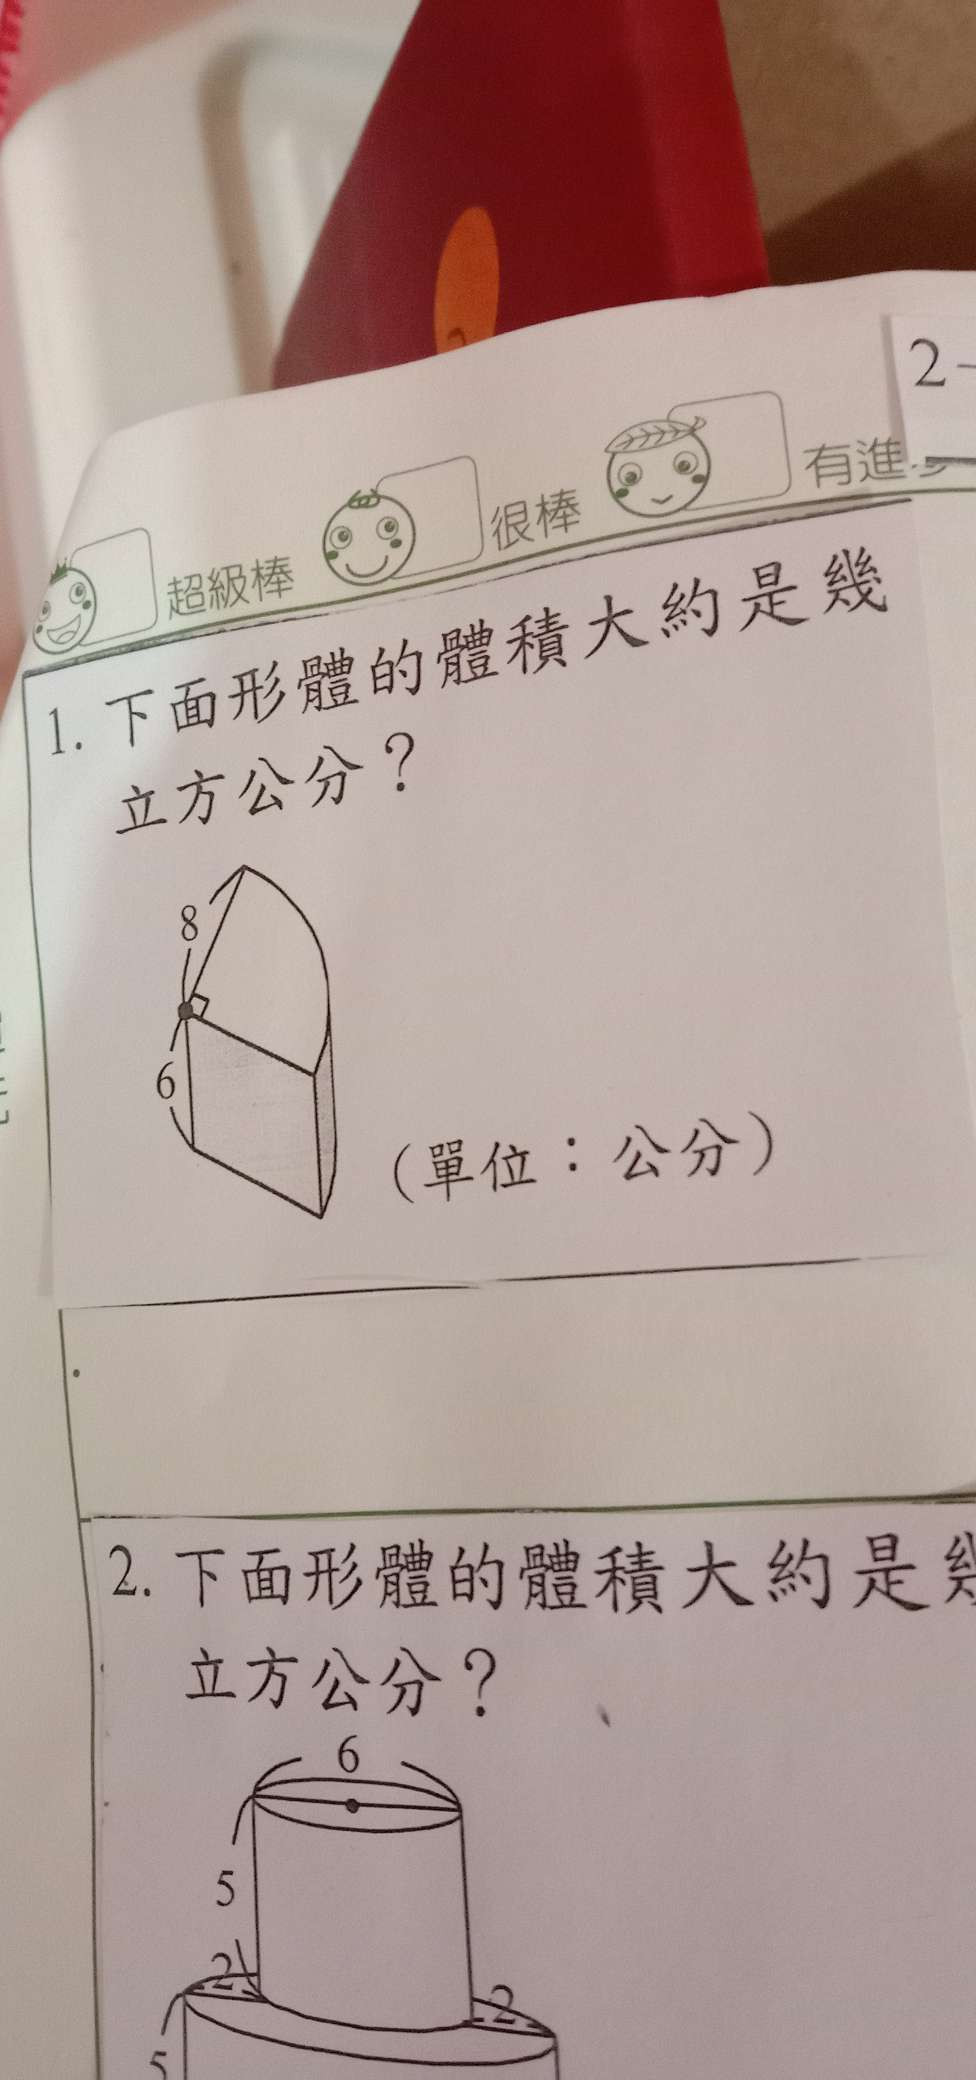 2-
超級棒 很棒 有進
1. 下面形體的體積大約是幾
立方公分？
8
6
(單位：公分)
2. 下面形體的體積大約是幾
立方公分？
6
5
2 2
5